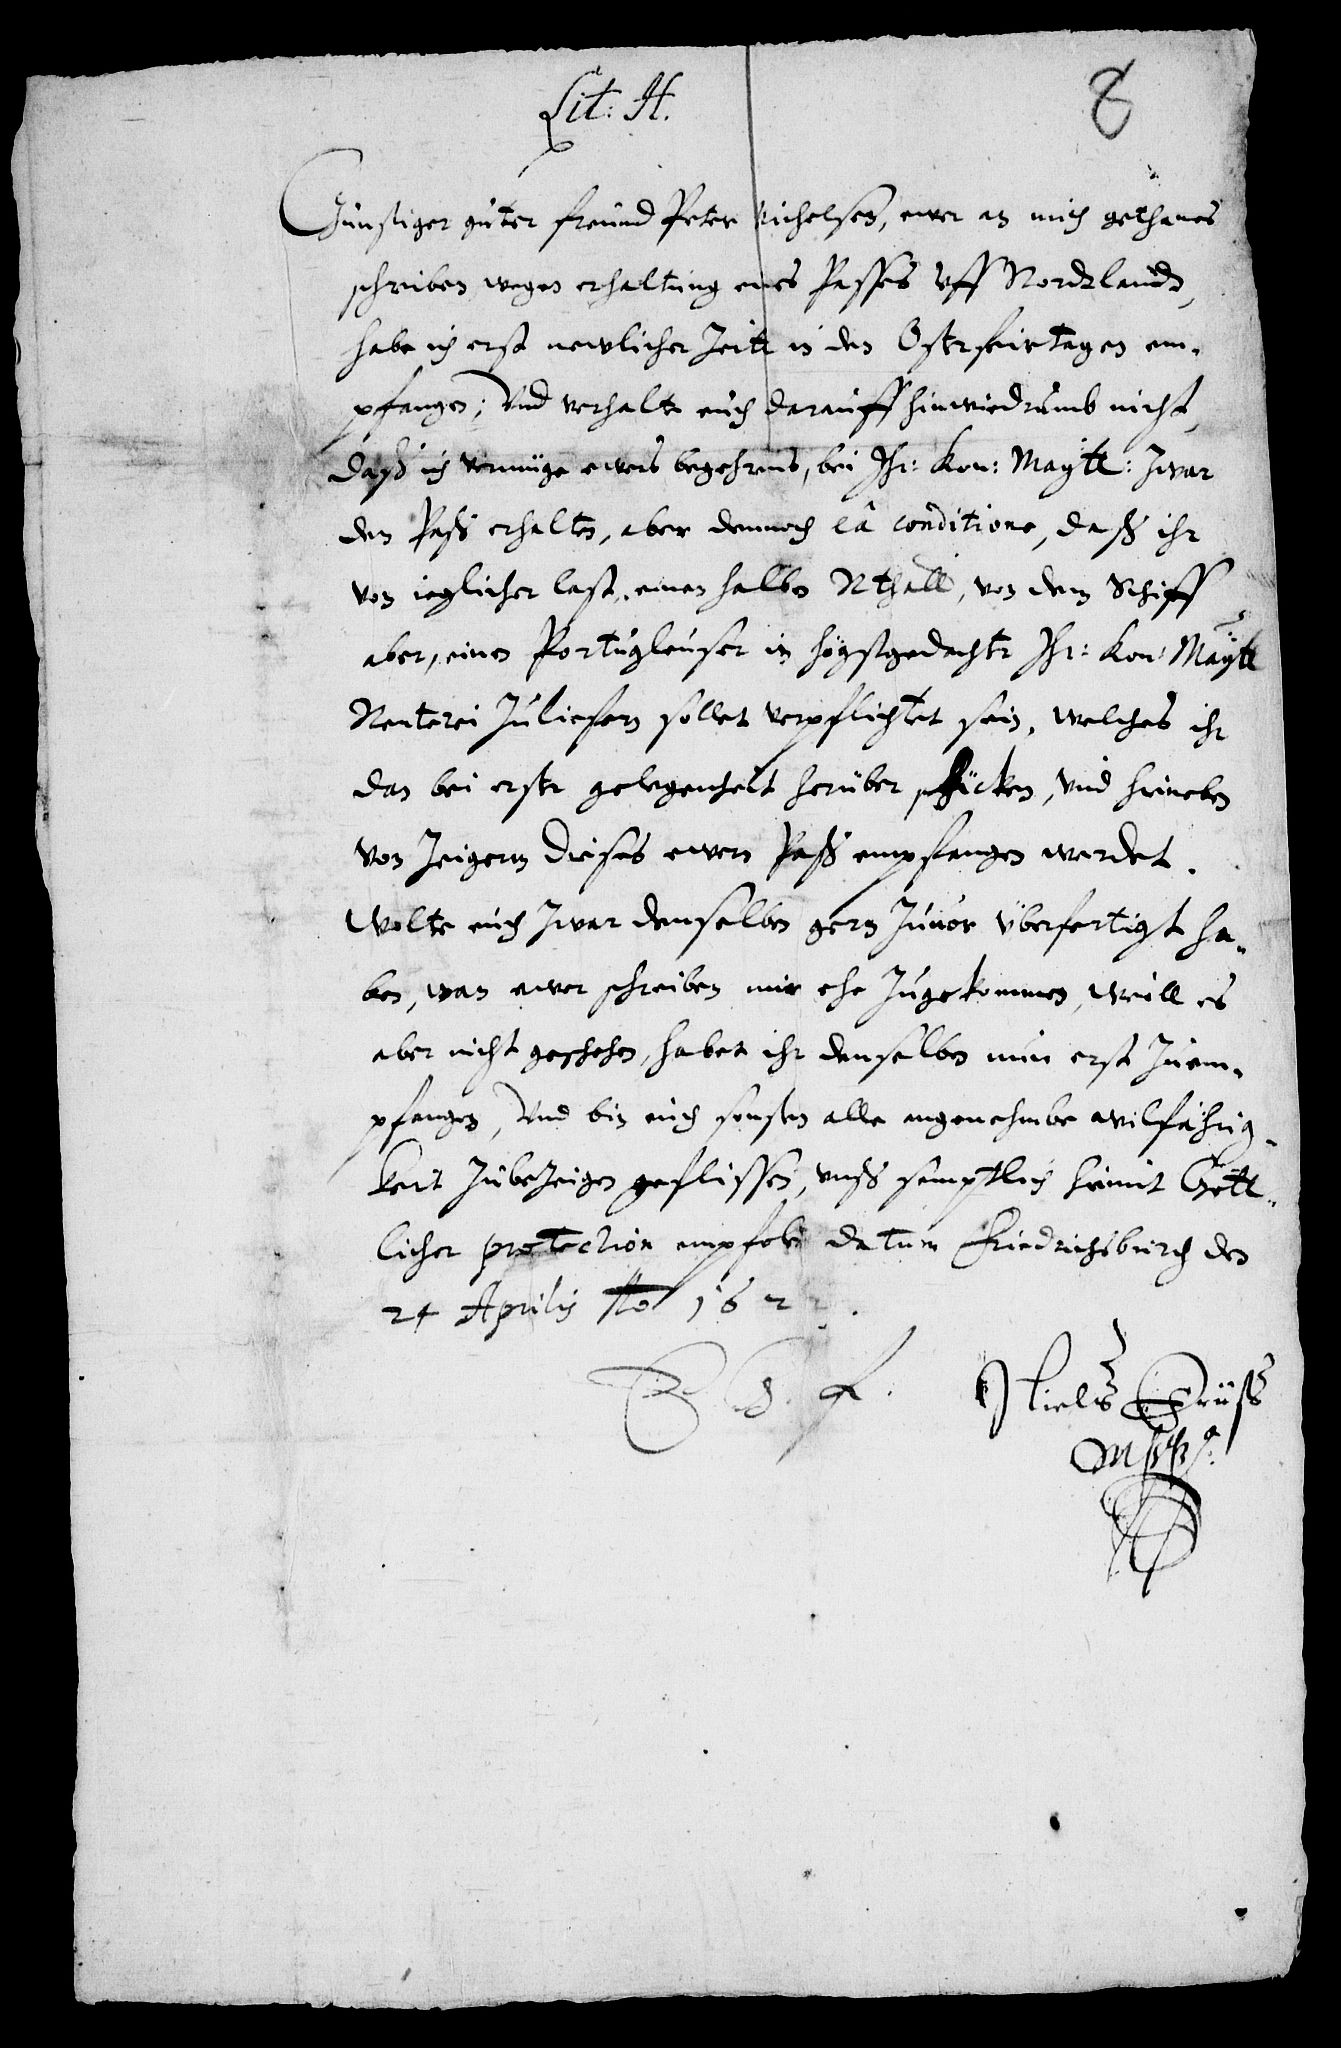 Lit: H.
8
Günstiger guter freund Peter Michelsen, ewer an mich gethanes
schreiben wegen erhaltung eines Passes uff Nordtlandt,
habe ich erst newlicher Zeitt in den Osterfeirtagen em-
pfangen; Und verhalte euch darauff hinwiedrumb nicht,
daß ich vermüge ewers begehrens, bei Ihr: Kön: Maytt: zwar
den Paß erhalten, aber dennoch eâ conditione, daß ihr
von ieglicher last, einen halben Rthall, von dem Schiff
aber, einen Portugleuser in högstgedachte Ihr: Kön: Maytt
Renterei zuliefern sollet verpflichtet sein, welches ihr
dan bei erster gelegenheit herüber schicken, und hieneben
von Zeigern dieses ewern Paß empfangen werdet.
Wolte euch zwar denselben gern zuvor überfertigt ha-
ben, wan ewer schreiben mir ehe zugekommen, weill es
aber nicht geschehen, habet ihr denselben nun erst zuem-
pfangen, Und bin euch sonsten alle angenehmbe wilfährig-
keit zubezeigen geflissen, unß semptlich hiemit Gött-
licher protection empfohlen datum Friedrichsburch den
24 Aprilis Ao 162
E G. F.
Niels Crüß
Mpp.